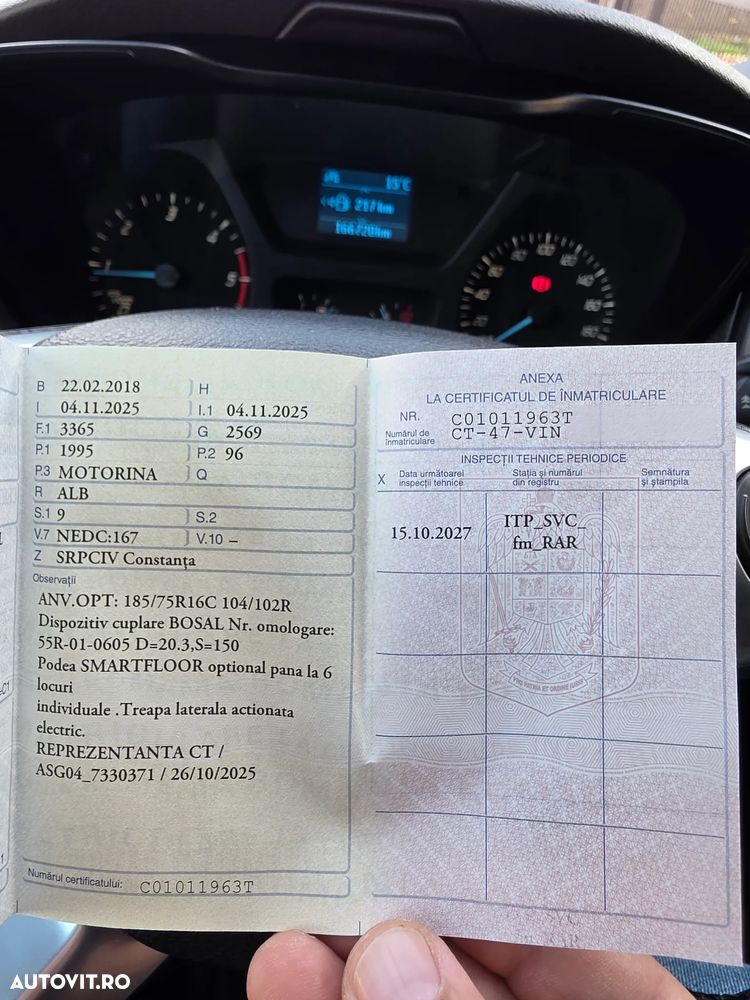 15°C
217km
166720km
1
2
3
4
5
B 22.02.2018 H
I 04.11.2025 I.1 04.11.2025
F.1 3365 G 2569
P.1 1995 P.2 96
P.3 MOTORINA Q
R ALB
S.1 9 S.2
V.7 NEDC:167 V.10 –
Z SRPCIV Constanţa
Observaţii
ANV.OPT: 185/75R16C 104/102R
Dispozitiv cuplare BOSAL Nr. omologare:
55R-01-0605 D=20.3,S=150
Podea SMARTFLOOR optional pana la 6
locuri
individuale .Treapa laterala actionata
electric.
REPREZENTANTA CT /
ASG04_7330371 / 26/10/2025
Numărul certificatului: C01011963T
ANEXA
LA CERTIFICATUL DE ÎNMATRICULARE
NR. C01011963T
Numărul de
înmatriculare CT-47-VIN
INSPECŢII TEHNICE PERIODICE
X Data următoarei
inspecţii tehnice
Staţia şi numărul
din registru
Semnătura
şi ştampila
15.10.2027
ITP_SVC_
fm_RAR
AUTOVIT.RO